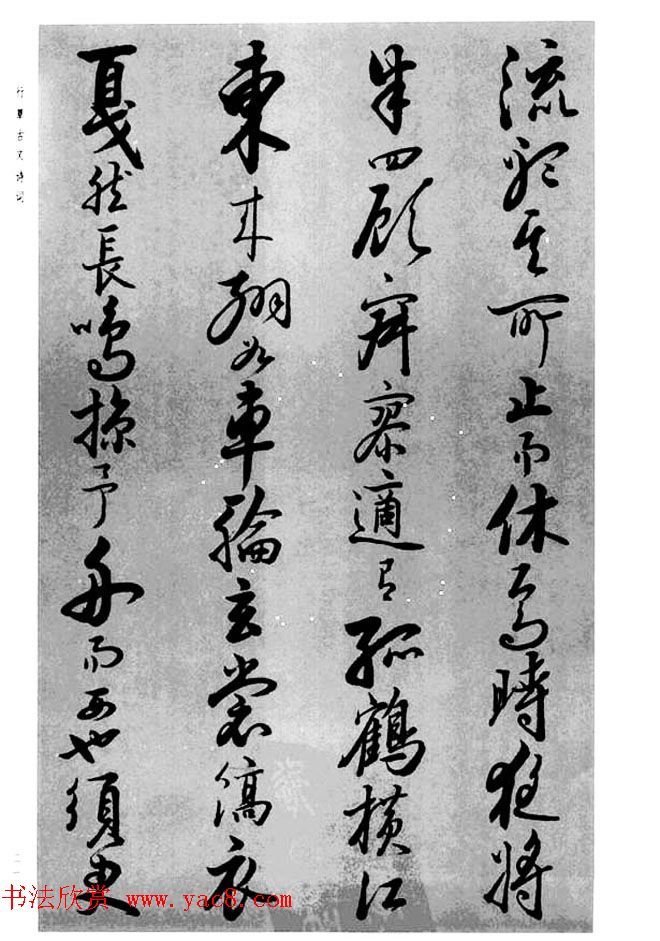 流聽其所止而休焉時夜將
半四顧寂寥適有孤鶴橫江
東來翅如車輪玄裳縞衣
戛然長鳴掠予舟而西也須臾
行草古文诗词
二一
书法欣赏 www.yac8.com